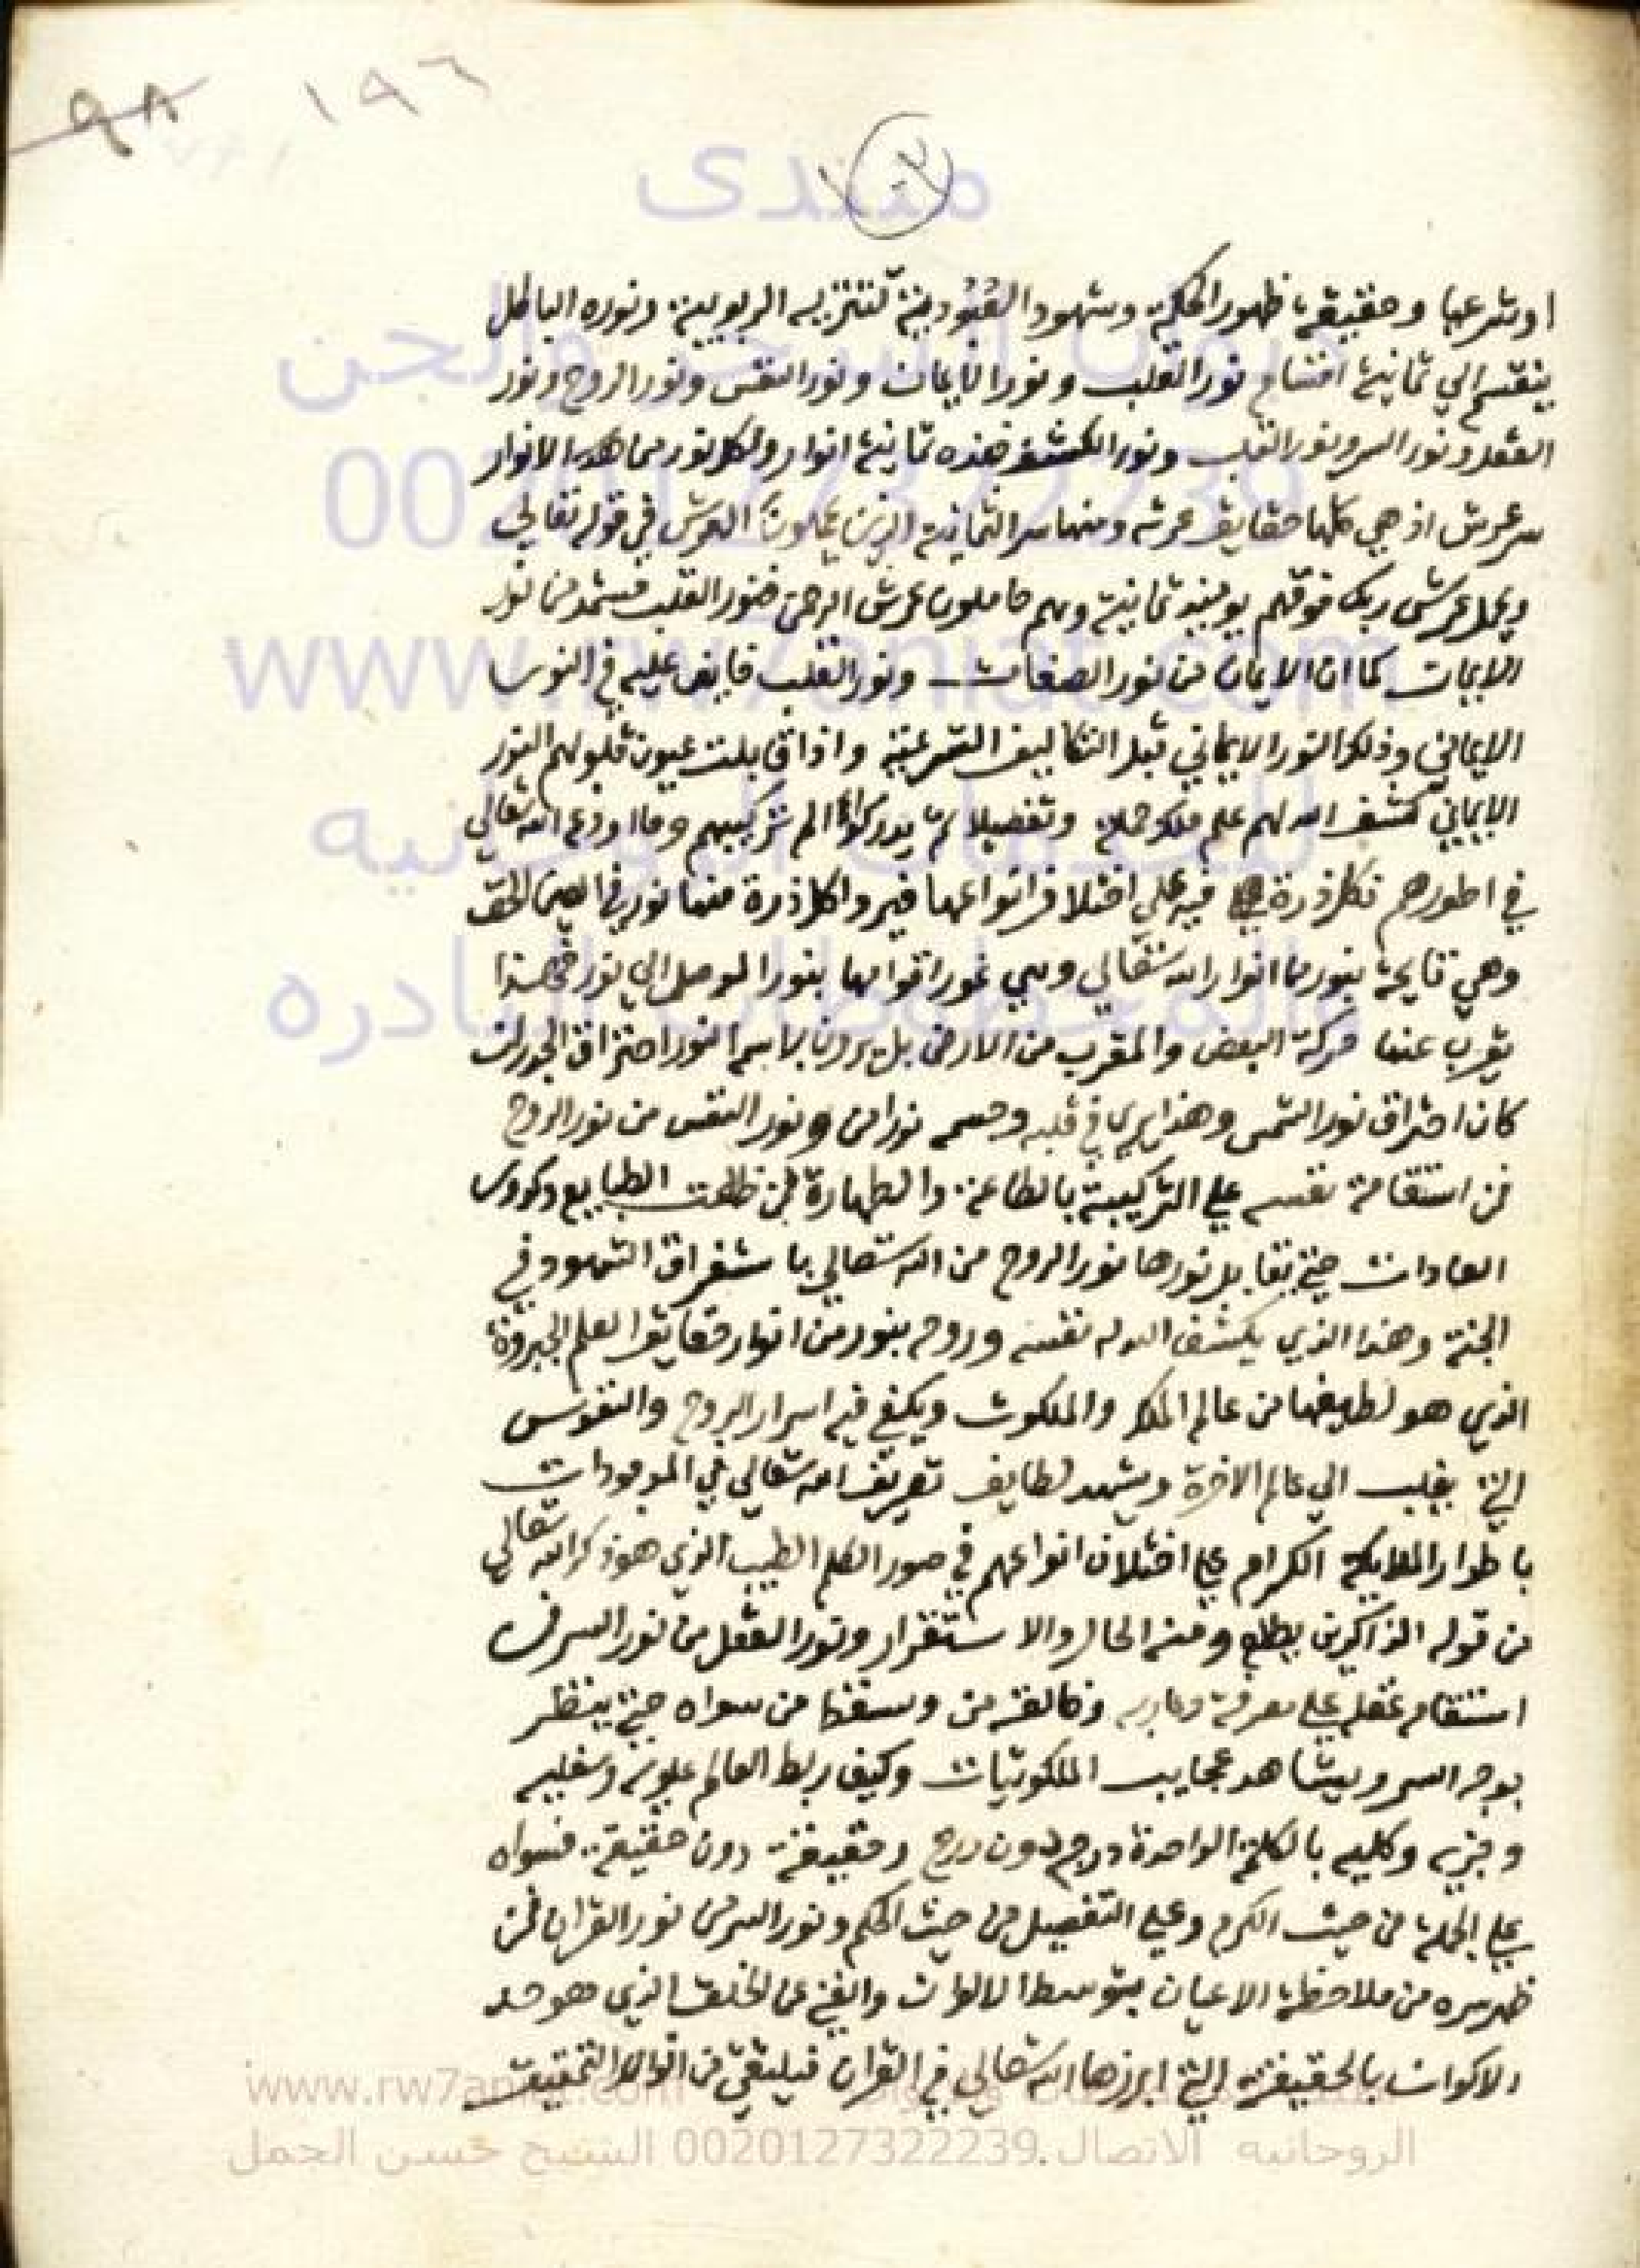 ٩٨ ١٩٦
منتدى
او شرعيا وحقيقة ظهور الحكمة وشهود العبودية لتنزيه الربوبية ونوره الباطن
ينقسم الي ثمانية اقسام نور القلب ونور الايمان ونور النفس ونور الروح ونور
العقل ونور السر ونور القلب ونور الكشف فهذه ثمانية انوار ولكل نور من هذه الانوار
سر عرش اذ هي كلها حقايق عرشه ومنها سر الثمانية الذين يحملون العرش في قوله تعالي
ويحمل عرش ربك فوقهم يوميذ ثمانية وهم حاملون عرش الرحمن فنور القلب مستمد من نور
الايمان كما ان الايمان من نور الصفات ونور القلب فايض عليه في النور
الايماني وذلك النور الايماني قبل التكاليف الشرعية واذا قابلت عيون قلوبهم النور
الايماني كشف الله لهم علم ذلك جملة وتفصيلا ثم يدركوا الم تركيبهم وما اودع الله تعالي
في اطورهم فكل ذرة فيه علي اختلاف انواعها ذرة منها نور الحق
وهي قايمة بنور من انوار الله تعالي وهي بنور الموصل الي نور فهذا
يقرب عنها حركة البعض والمقرب من الارض بل يرون باسم النور احتراق
كان احتراق نور الشمس وهذا يري في قلبه وجسمه ونور النفس من نور الروح
فمن استقامة نفسه علي التركيبة بالطاعة والطهارة من ظلمت الطبايع وكدورات
العادات حتي تقابل نورها نور الروح من الله تعالي باستغراق الشهود في
الجنة وهذا الذي يكشف الله له نفسه وروحه بنور من انوار حقايق العلم الجبروة
الذي هو لطيفها من عالم الملك والملكوت ويكشف فيه اسرار الروح والنفوس
التي يغلب الي عالم الاخرة ويشهد لطايف تعريف الله تعالي في الموجودات
باطوار الملايكة الكرام علي اختلاف انواعهم في صور الكلم الطيب الذي هو ذكر الله تعالي
من قوله الذاكرين ومنه الحال والاستقرار ونور العقل من نور السر فمن
استقام عقله علي معرفة من سواه حتي ينظر
بوجه السر ويشاهد عجايب الملكوتيات وكيف ربط العالم علويه وسفليه
وجزيه وكليه بالكلمة الواحدة درج دون درج وحقيقة دون حقيقة فسواه
علي الجملة من حيث الكرم وعلي التفصيل من حيث الحكم ونور السر من نور القران فمن
ظهر سره من ملاحظة الاعيان بتوسط الالوان والفني عن الخلق الذي هو حد
الاكوان بالحقيقة التي ابرزها الله تعالي في القران فيلتقي من انوار التحقيق
www.rw7aniat.com
0020127322239
والمخطوطات النادره
الروحانيه الاتصال.0020127322239 الشيخ حسن الجمل